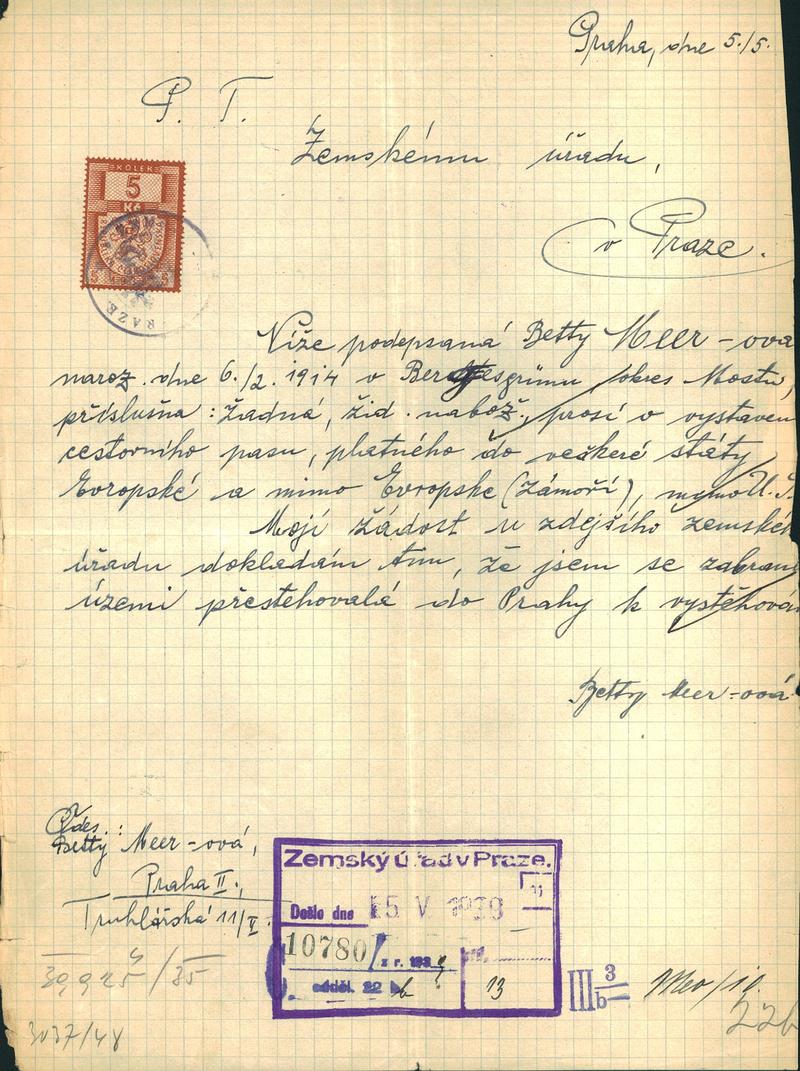 Praha, dne 5./5.
P. T.
Zemskému úřadu,
v Praze.
KOLEK
5
Kč
RAZE
Níže podepsaná Betty Meer-ova
naroz. dne 6./2. 1914 v okres Mostu,
příslušna: žadná, žid. nabož., prosí o vystaven
cestovního pasu, platného do veškeré státy
Evropské a mimo Evropske (Zámoří),
Mojí žádost u zdejšího zemské
úřadu dokladám tim, že jsem se zabran
územi přestěhovala do Prahy k vystěhová
Betty Meer-ová
Odes.:
Betty Meer-ová,
Praha II.,
Truhlářská 11/V.
Zemský úřad v Praze.
Došlo dne 15 V 1939
10780/ z r. 193
odděl. 22 b
13
III 3
b
3037/48
22b